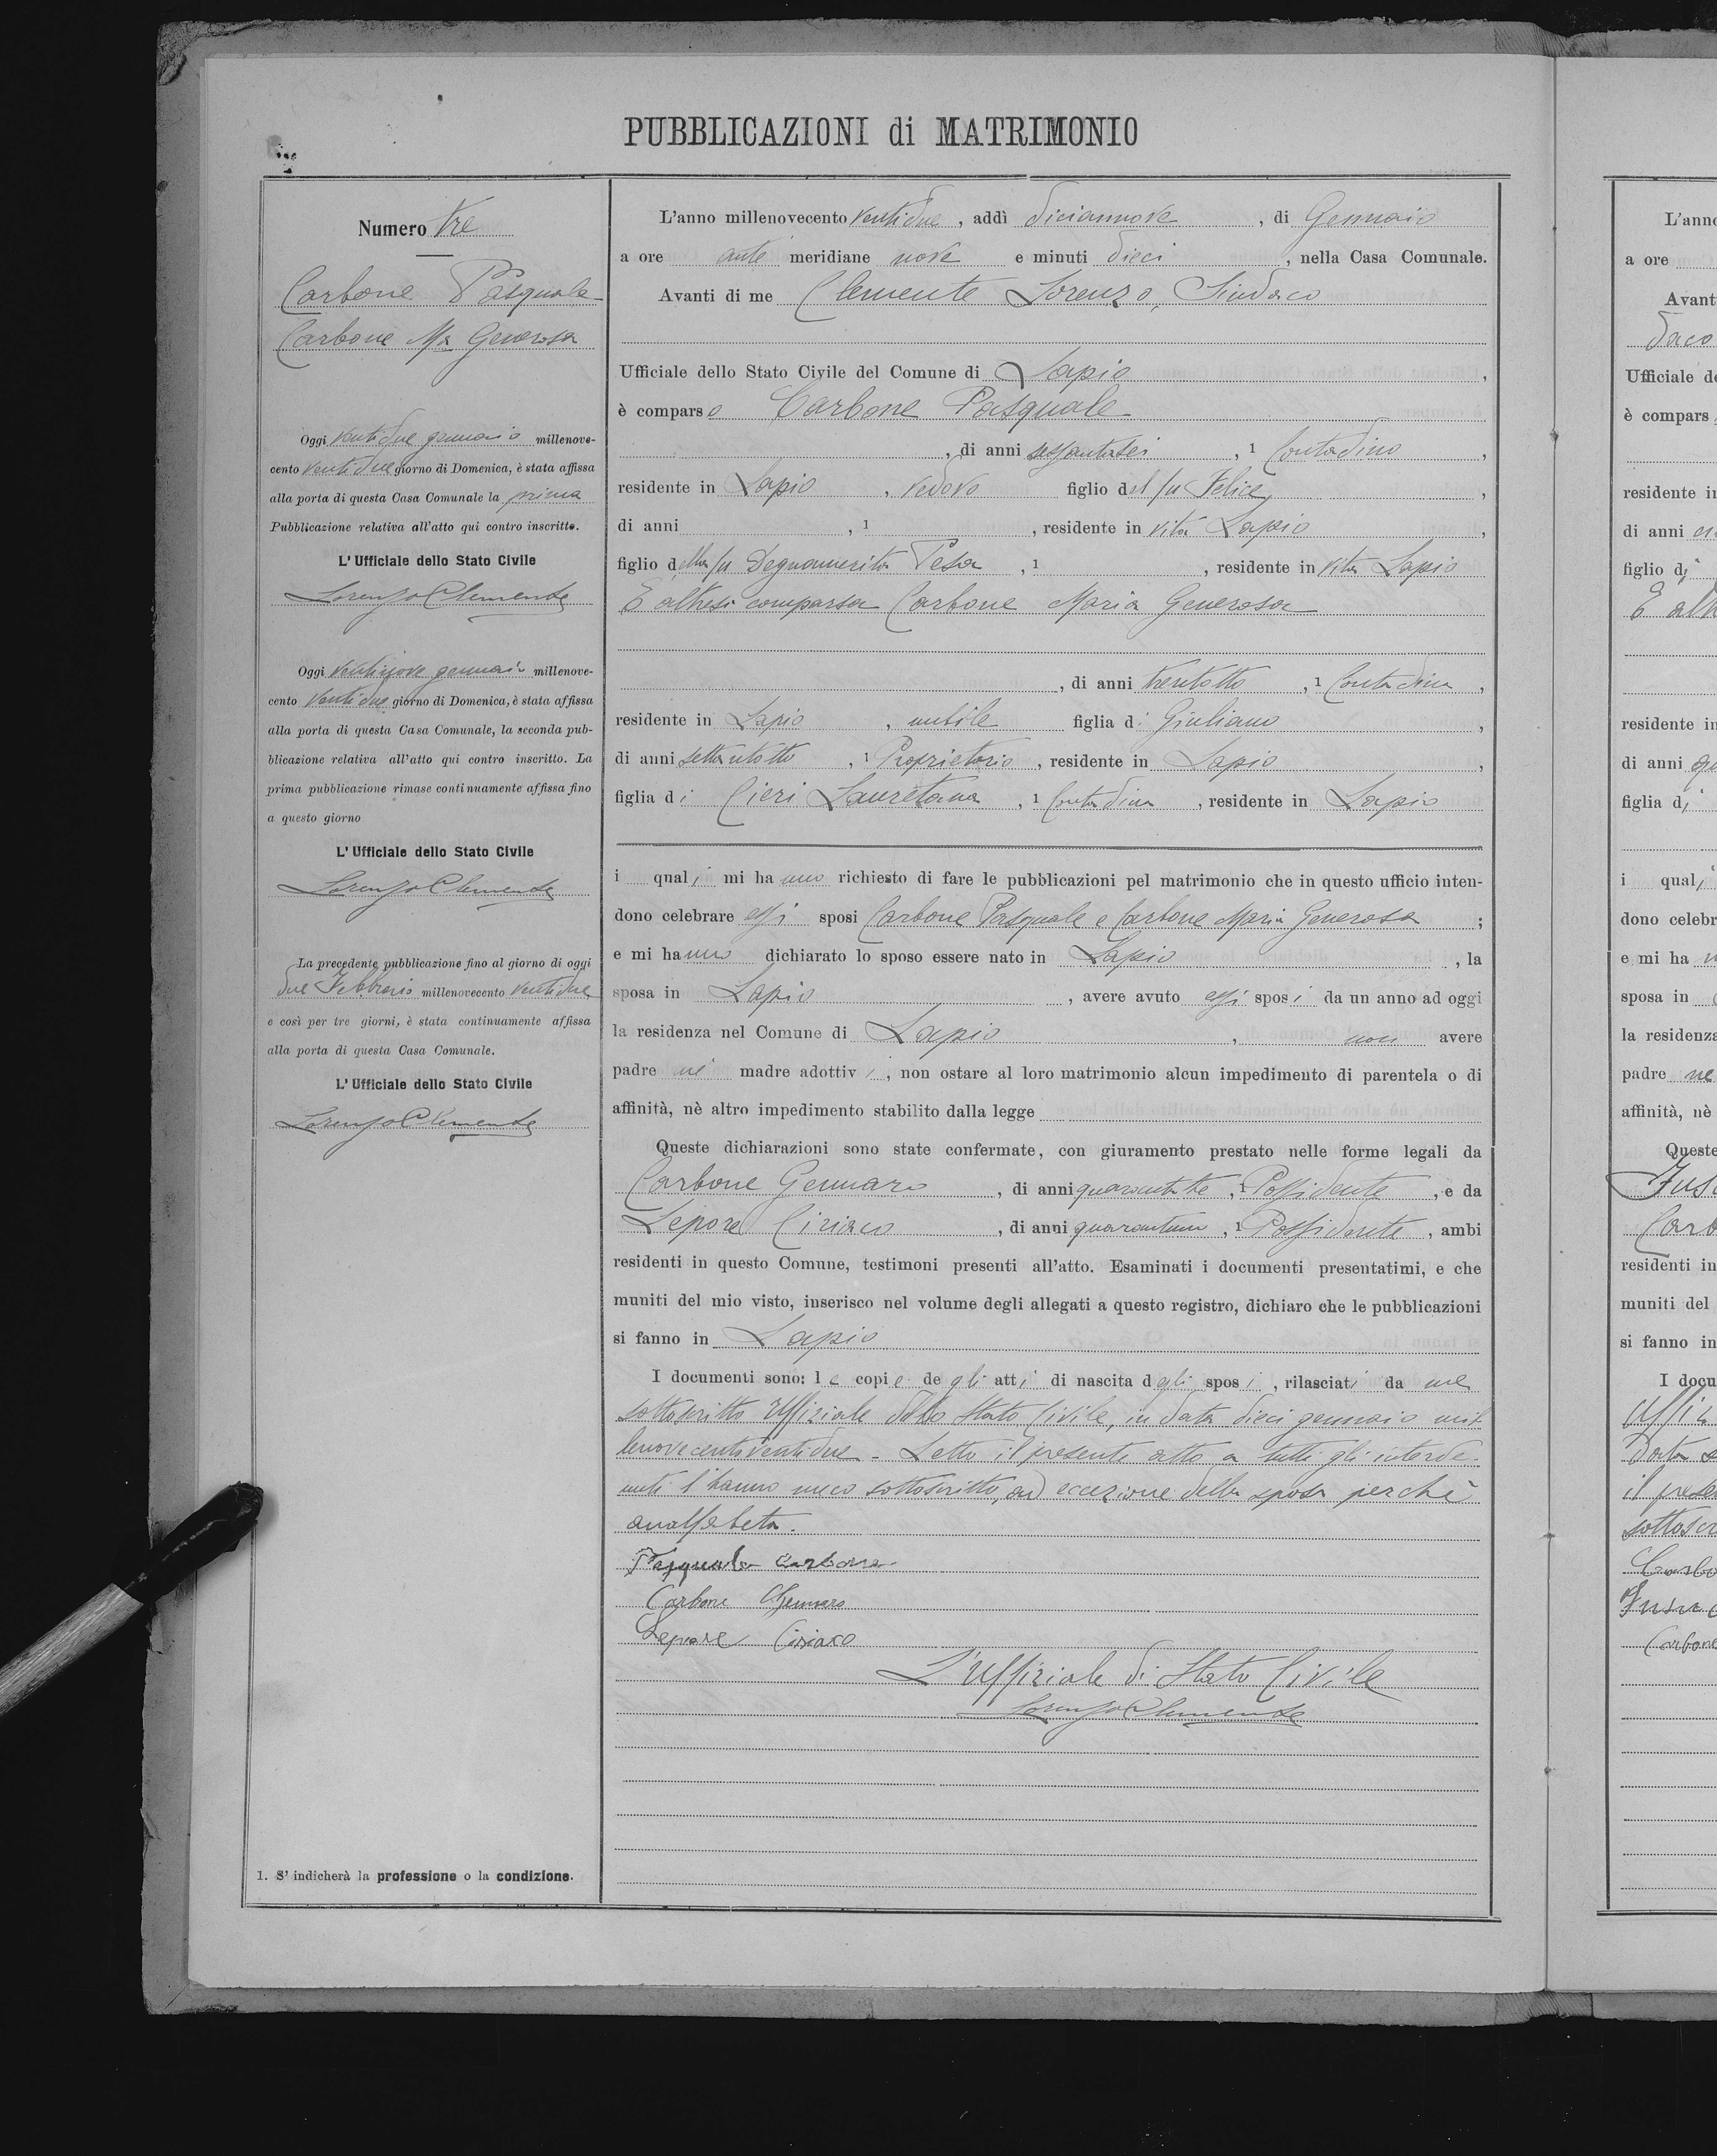 PUBBLICAZIONI di MATRIMONIO
Numero tre
Carbone Pasquale
Carbone Ma Generosa
Oggi ventidue gennaio millenove-
cento ventidue giorno di Domenica, è stata affissa
alla porta di questa Casa Comunale la prima
Pubblicazione relativa all'atto qui contro inscritto.
L'Ufficiale dello Stato Civile
Lorenzo Clemente
Oggi ventinove gennaio millenove-
cento ventidue giorno di Domenica, è stata affissa
alla porta di questa Casa Comunale, la seconda pub-
blicazione relativa all'atto qui contro inscritto. La
prima pubblicazione rimase continuamente affissa fino
a questo giorno
L'Ufficiale dello Stato Civile
Lorenzo Clemente
La precedente pubblicazione fino al giorno di oggi
due Febbraio millenovecento ventidue
e così per tre giorni, è stata continuamente affissa
alla porta di questa Casa Comunale.
L'Ufficiale dello Stato Civile
Lorenzo Clemente
1. S' indicherà la professione o la condizione.
L'anno millenovecento ventidue, addì diciannove, di Gennaio
a ore anti meridiane nove e minuti dieci, nella Casa Comunale.
Avanti di me Clemente Lorenzo, Sindaco
Ufficiale dello Stato Civile del Comune di Lapio,
è comparso Carbone Pasquale
, di anni sessantasei, 1 Contadino,
residente in Lapio, vedovo figlio del fu Felice,
di anni , 1 , residente in vita Lapio,
figlio della fu Degnamerita Pesa, 1 , residente in vita Lapio
È altresì comparsa Carbone Maria Generosa
, di anni trentotto, 1 Contadina,
residente in Lapio, nubile figlia di Giuliano,
di anni settantotto, 1 Proprietario, residente in Lapio,
figlia di Cieri Lauretana, 1 Contadina, residente in Lapio
i quali mi hanno richiesto di fare le pubblicazioni pel matrimonio che in questo ufficio inten-
dono celebrare essi sposi Carbone Pasquale e Carbone Maria Generosa;
e mi hanno dichiarato lo sposo essere nato in Lapio, la
sposa in Lapio, avere avuto essi sposi da un anno ad oggi
la residenza nel Comune di Lapio, non avere
padre nè madre adottivi, non ostare al loro matrimonio alcun impedimento di parentela o di
affinità, nè altro impedimento stabilito dalla legge
Queste dichiarazioni sono state confermate, con giuramento prestato nelle forme legali da
Carbone Gennaro, di anni, 1 Possidente, e da
Lepore Ciriaco, di anni quarantuno, 1 Possidente, ambi
residenti in questo Comune, testimoni presenti all'atto. Esaminati i documenti presentatimi, e che
muniti del mio visto, inserisco nel volume degli allegati a questo registro, dichiaro che le pubblicazioni
si fanno in Lapio
I documenti sono: le copie degli atti di nascita degli sposi, rilasciati da me
sottoscritto Uffiziale dello Stato Civile, in data dieci gennaio mil-
lenovecentoventidue - Letto il presente atto a tutti gli interve-
nuti l'hanno meco sottoscritto, ad eccezione della sposa perchè
analfabeta.
Pasquale Carbone
Carbone Gennaro
Lepore Ciriaco
L'Uffiziale di Stato Civile
Lorenzo Clemente
L'anno
a ore
Avant
daco
Ufficiale de
è compars
residente in
di anni
figlio di
È alt
residente in
di anni
figlia di
i quali
dono celebr
e mi ha
sposa in
la residenza
padre ne
affinità, nè
Queste
Carb
residenti in
muniti del
si fanno in
I docu
Data
il prese
sottoscr
Carbo
Carbone